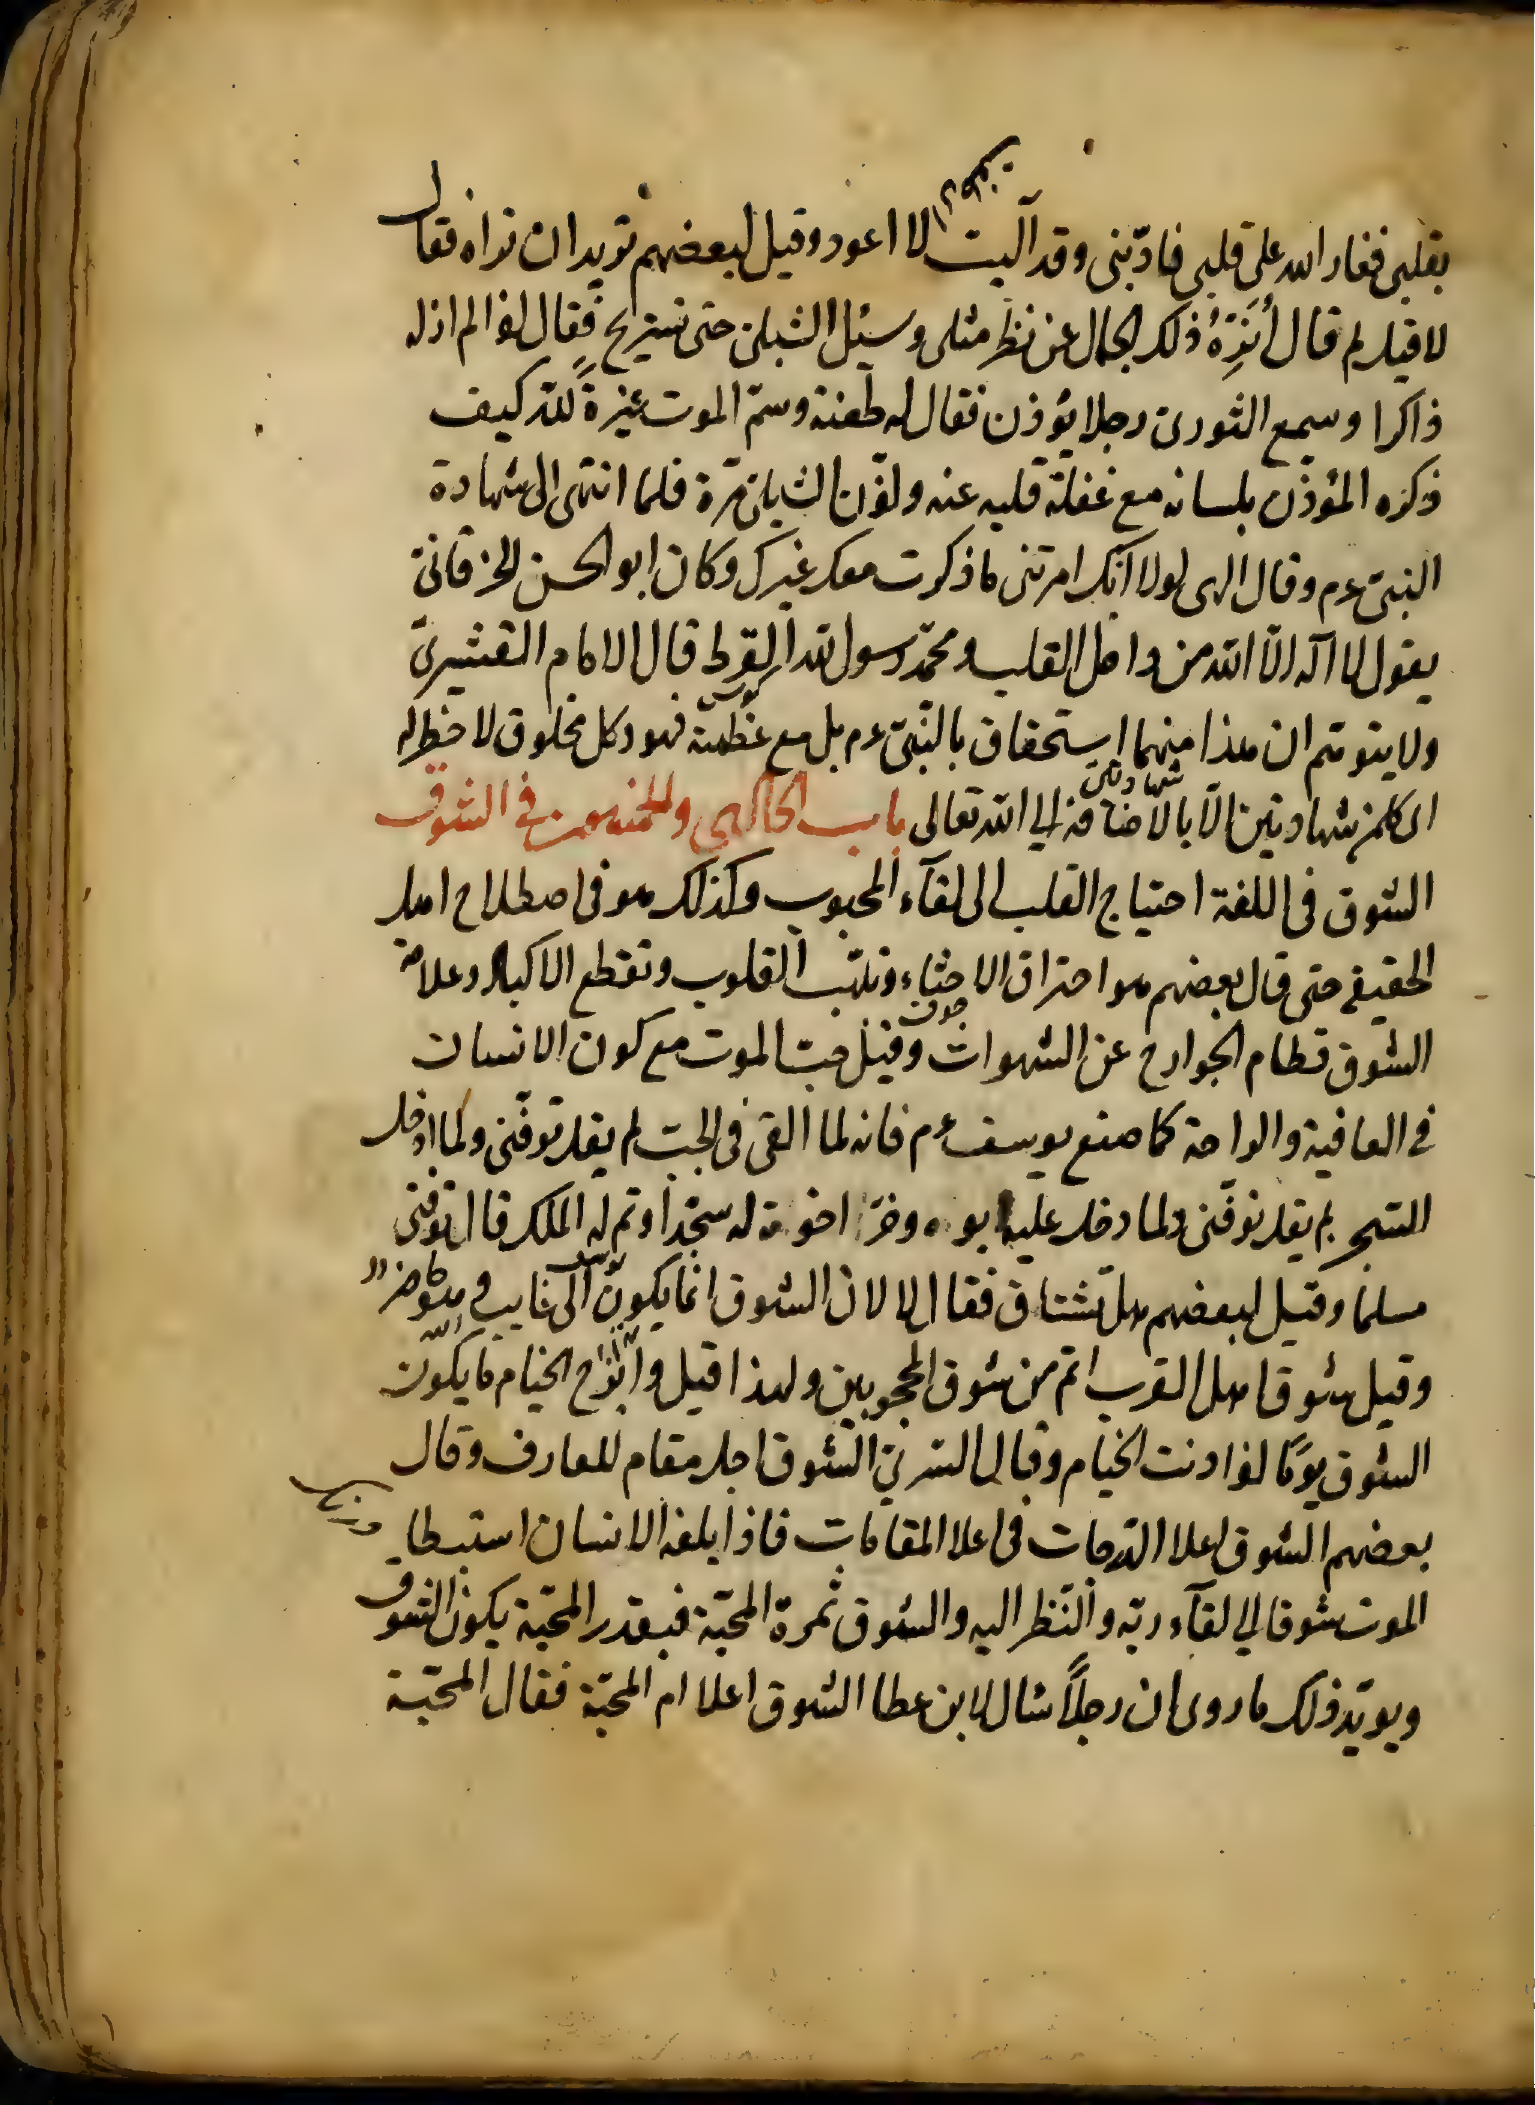 بقلبى فغار الله على قلبى فادّبنى وقد آليت لا اعود وقيل لبعضهم تريد ان تراه فقال
لا قيل لم قال أُنَزِّهُ ذلك الجمال عن نظر مثلى وسئل الشبلى متى تستريح فقال اذا لم ازله
ذاكرا وسمع النورى رجلا يؤذن فقال له طعنة وسمّ الموت غيرةً لله كيف
ذكره المؤذن بلسانه مع غفلة قلبه عنه واذّن الشبلى مرّة فلما انتهى الى شهادة
النبىّ عم وقال الهى لولا انّك امرتنى ما ذكرت معك غيرك وكان ابو الحسن الخرقانىّ
يقول لا اله الّا الله من داخل القلب ومحمّد رسول الله من القرط قال الامام القشيرىّ
ولا يتوهّم ان هذا منهما استحقاق بالنّبىّ عم بل مع عظمته فهو وكل مخلوق لا خطر له
شهادتين الّا بالاضافة الى الله تعالى باب الحادى والخمسون فى الشوق
الشوق فى اللغة احتياج القلب الى لقآء المحبوب وكذلك هو فى اصطلاح اهل
الحقيقة حتى قال بعضهم هو احتراق الاحشاء وتلهّب القلوب وتقطع الاكباد وعلامة
الشوق فطام الجوارح عن الشهوات وقيل حبّ الموت مع كون الانسان
فى العافية والراحة كما صنع يوسف عم فانه لما القى فى الجبّ لم يقل توفّنى ولما ادخل
السّجن لم يقل توفّنى ولما دخل عليه ابوه وخرّ اخوته له سجّدا وتم له الملك قال توفّنى
مسلما وقيل لبعضهم هل تشتاق فقال لا لان الشوق انما يكون الى غايب وهو حاضر
وقيل شوق اهل القرب اتم من شوق المحجوبين ولهذا قيل وابرح ما يكون
الشوق يومًا اذا دنت الخيام وقال السّرىّ الشوق اجل مقام للعارف وقال
بعضهم الشوق اعلا الدّرجات فى اعلا المقامات فاذا بلغه الانسان استبطا
الموت شوقا الى لقآء ربّه والنّظر اليه والشوق ثمرة المحبّة فبقدر المحبّة يكون الشوق
ويويّد ذلك ما روى ان رجلًا سال لابن عطا الشوق اعلا ام المحبّة فقال المحبّة